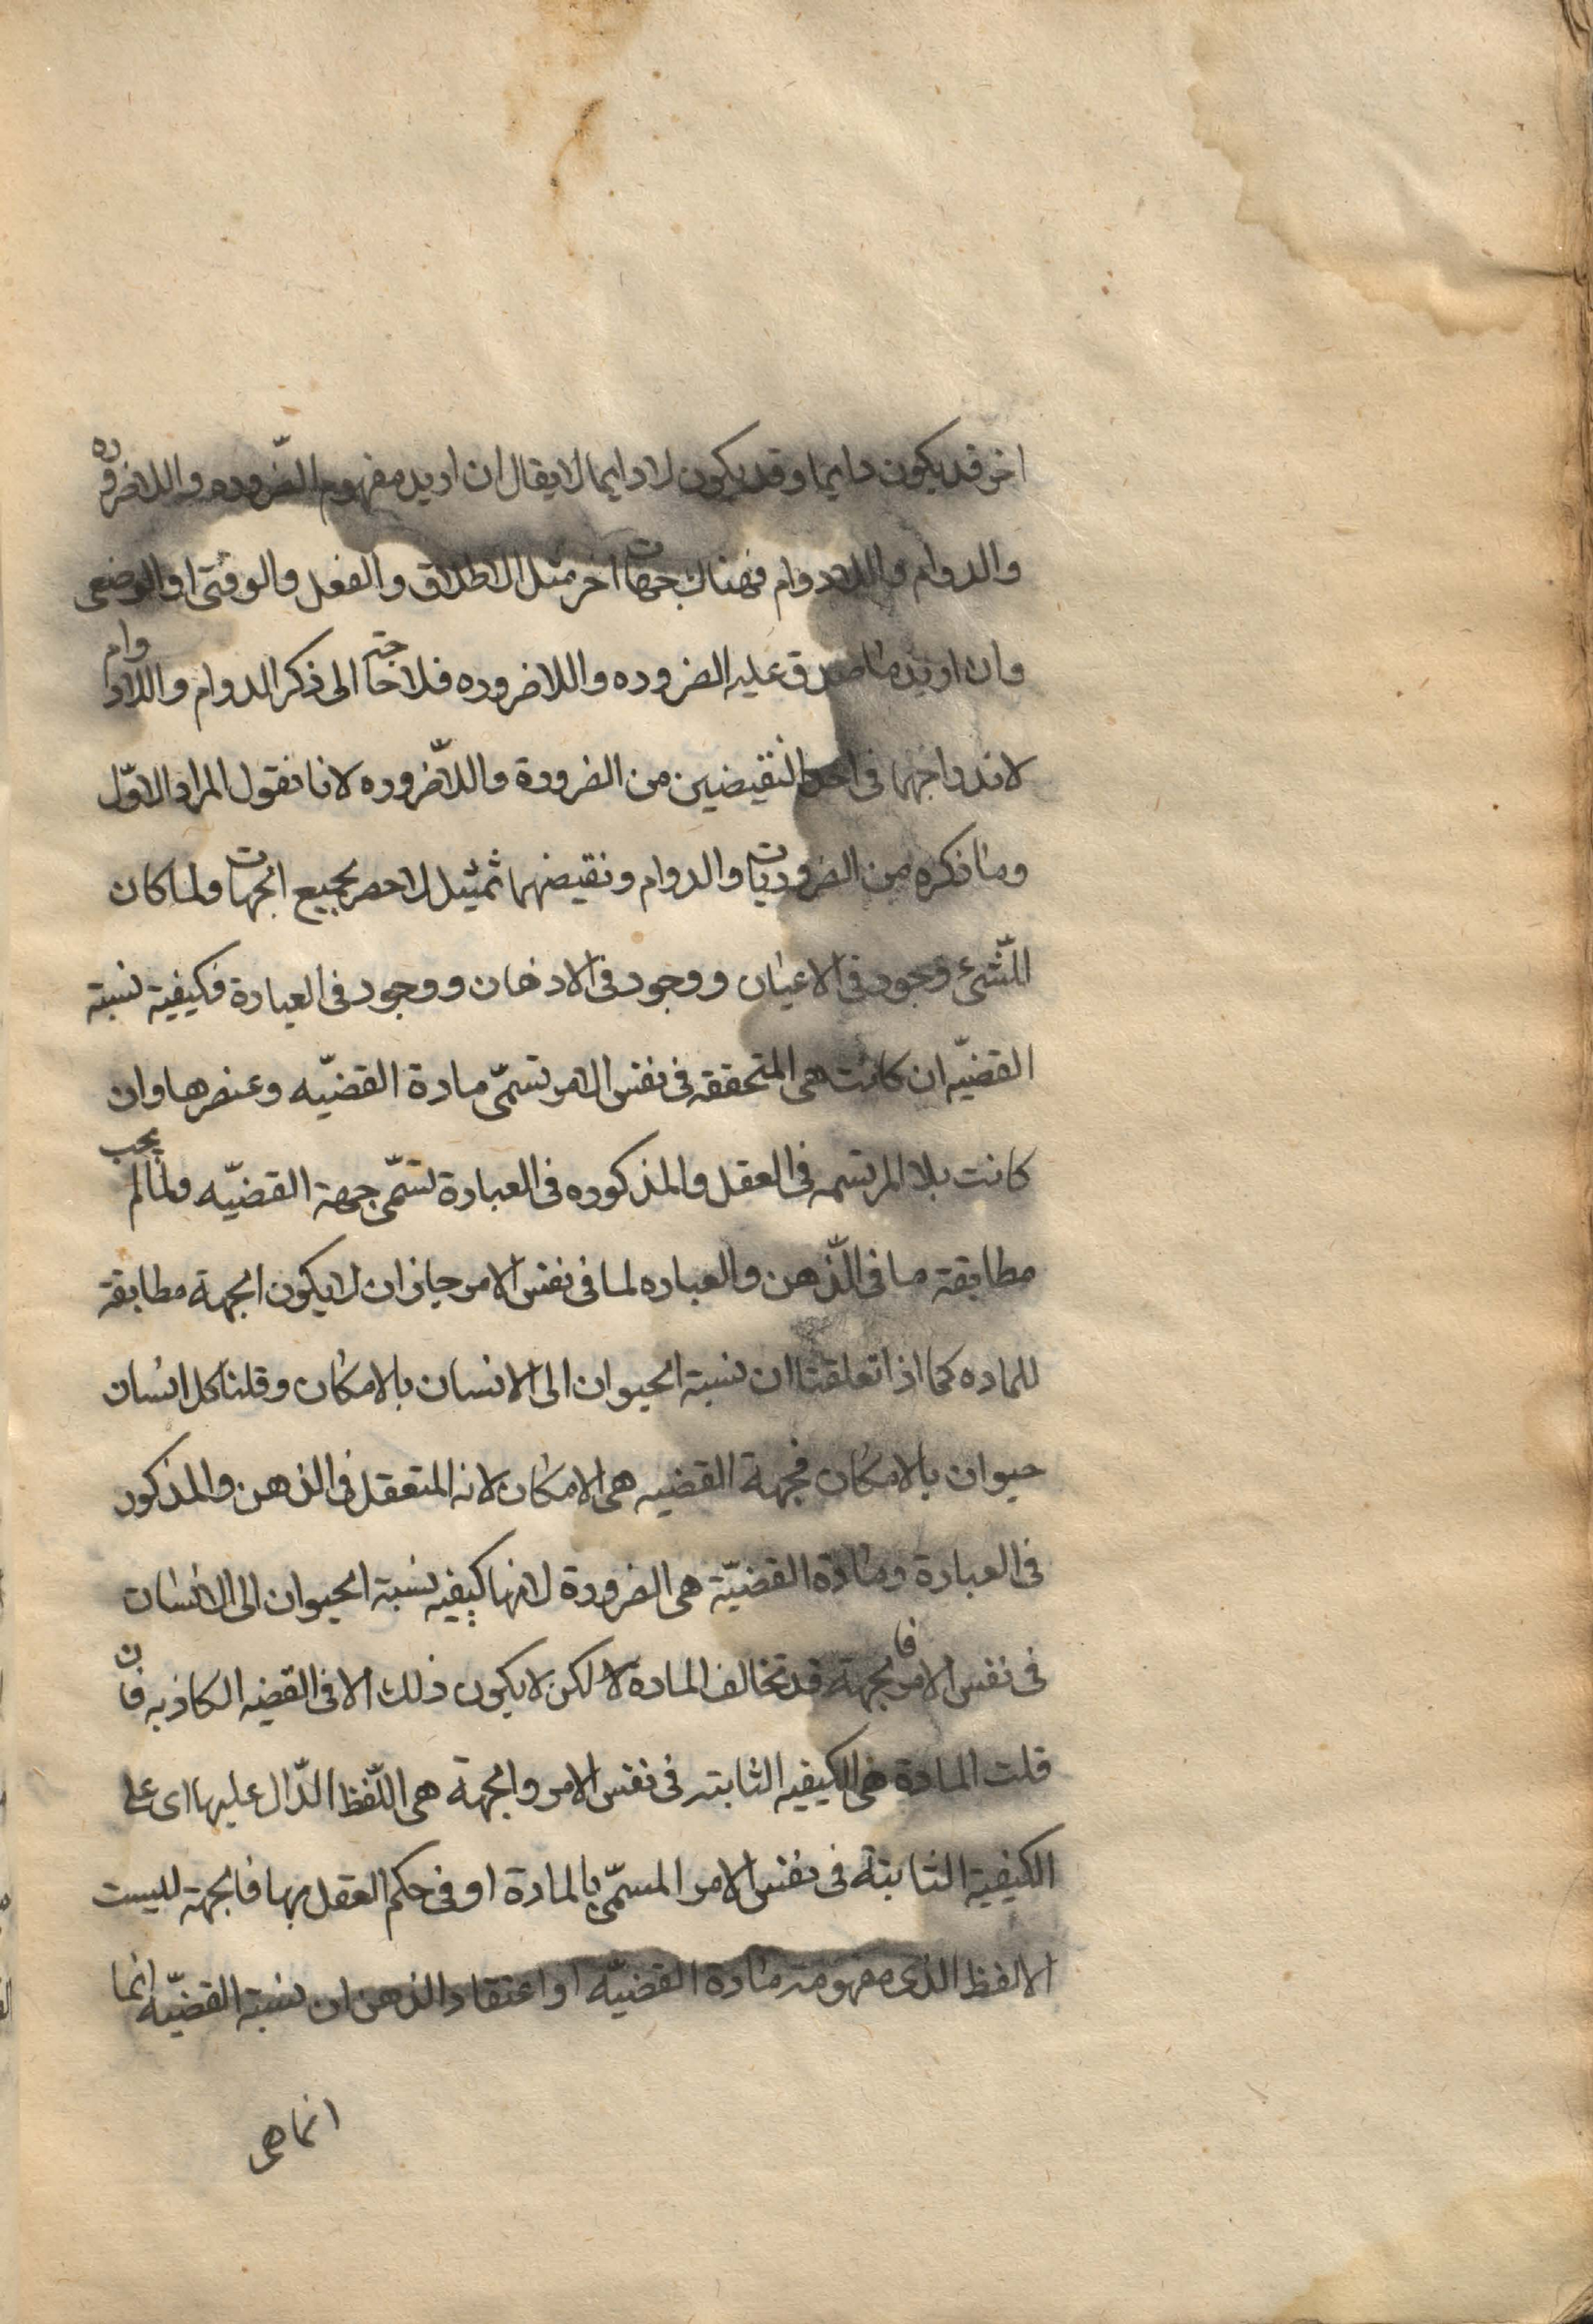 اخر قد يكون دايما وقد يكون لا دايما لا يقال ان اريد مفهوم الضّروره واللاضروره
والدوام واللادوام فهناك جهات اخر مثل الاطلاق والفعل والوقتى او الوضعى
وان اريد ما صدق عليه الضروره واللاضروره فلا حاجة الى ذكر الدوام واللادوام
لاندراجهما فى احد النقيضين من الضرورة واللاّضروره لانا نقول المراد الاوّل
وما ذكره من الضروريات والدوام ونقيضهما تمثيل لا حصر بجميع الجهات ولما كان
للّشئ وجود فى الاعيان ووجود فى الاذهان ووجود فى العبارة فكيفية نسبة
القضيّه ان كانت هى المتحققه فى نفس الامر تسمّى مادة القضيّه وعنصرها وان
كانت بلا المرتسمه فى العقل والمذكوره فى العبارة تسمّى جهة القضيّه ولمّا لم يجب
مطابقة ما فى الّذهن والعباره لما فى نفس الامر جاز ان لا يكون الجهة مطابقة
للماده كما اذا تعلقنا ان نسبة الحيوان الى الانسان بالامكان وقلنا كل انسان
حيوان بالامكان فجهة القضيه هى الامكان لانه المتعقل فى الذهن والمذكور
فى العبارة ومادة القضيّة هى الضرورة لانها كيفيه نسبة الحيوان الى الانسان
فى نفس الامر فالجهة قد تخالف المادة لا لكن لا يكون ذلك الا فى القضيه الكاذبه فان
قلت المادة هى الكيفيه الثابته فى نفس الامر والجهة هى اللّفظ الدّال عليها اى على
الكيفية الثابتة فى نفس الامر المسمّى بالمادة او فى حكم العقل بها فالجهة ليست
الا لفظ الذى مفهومه مادة القضيّه او اعتقاد الذهن ان نسبة القضيّه انما
انما هى